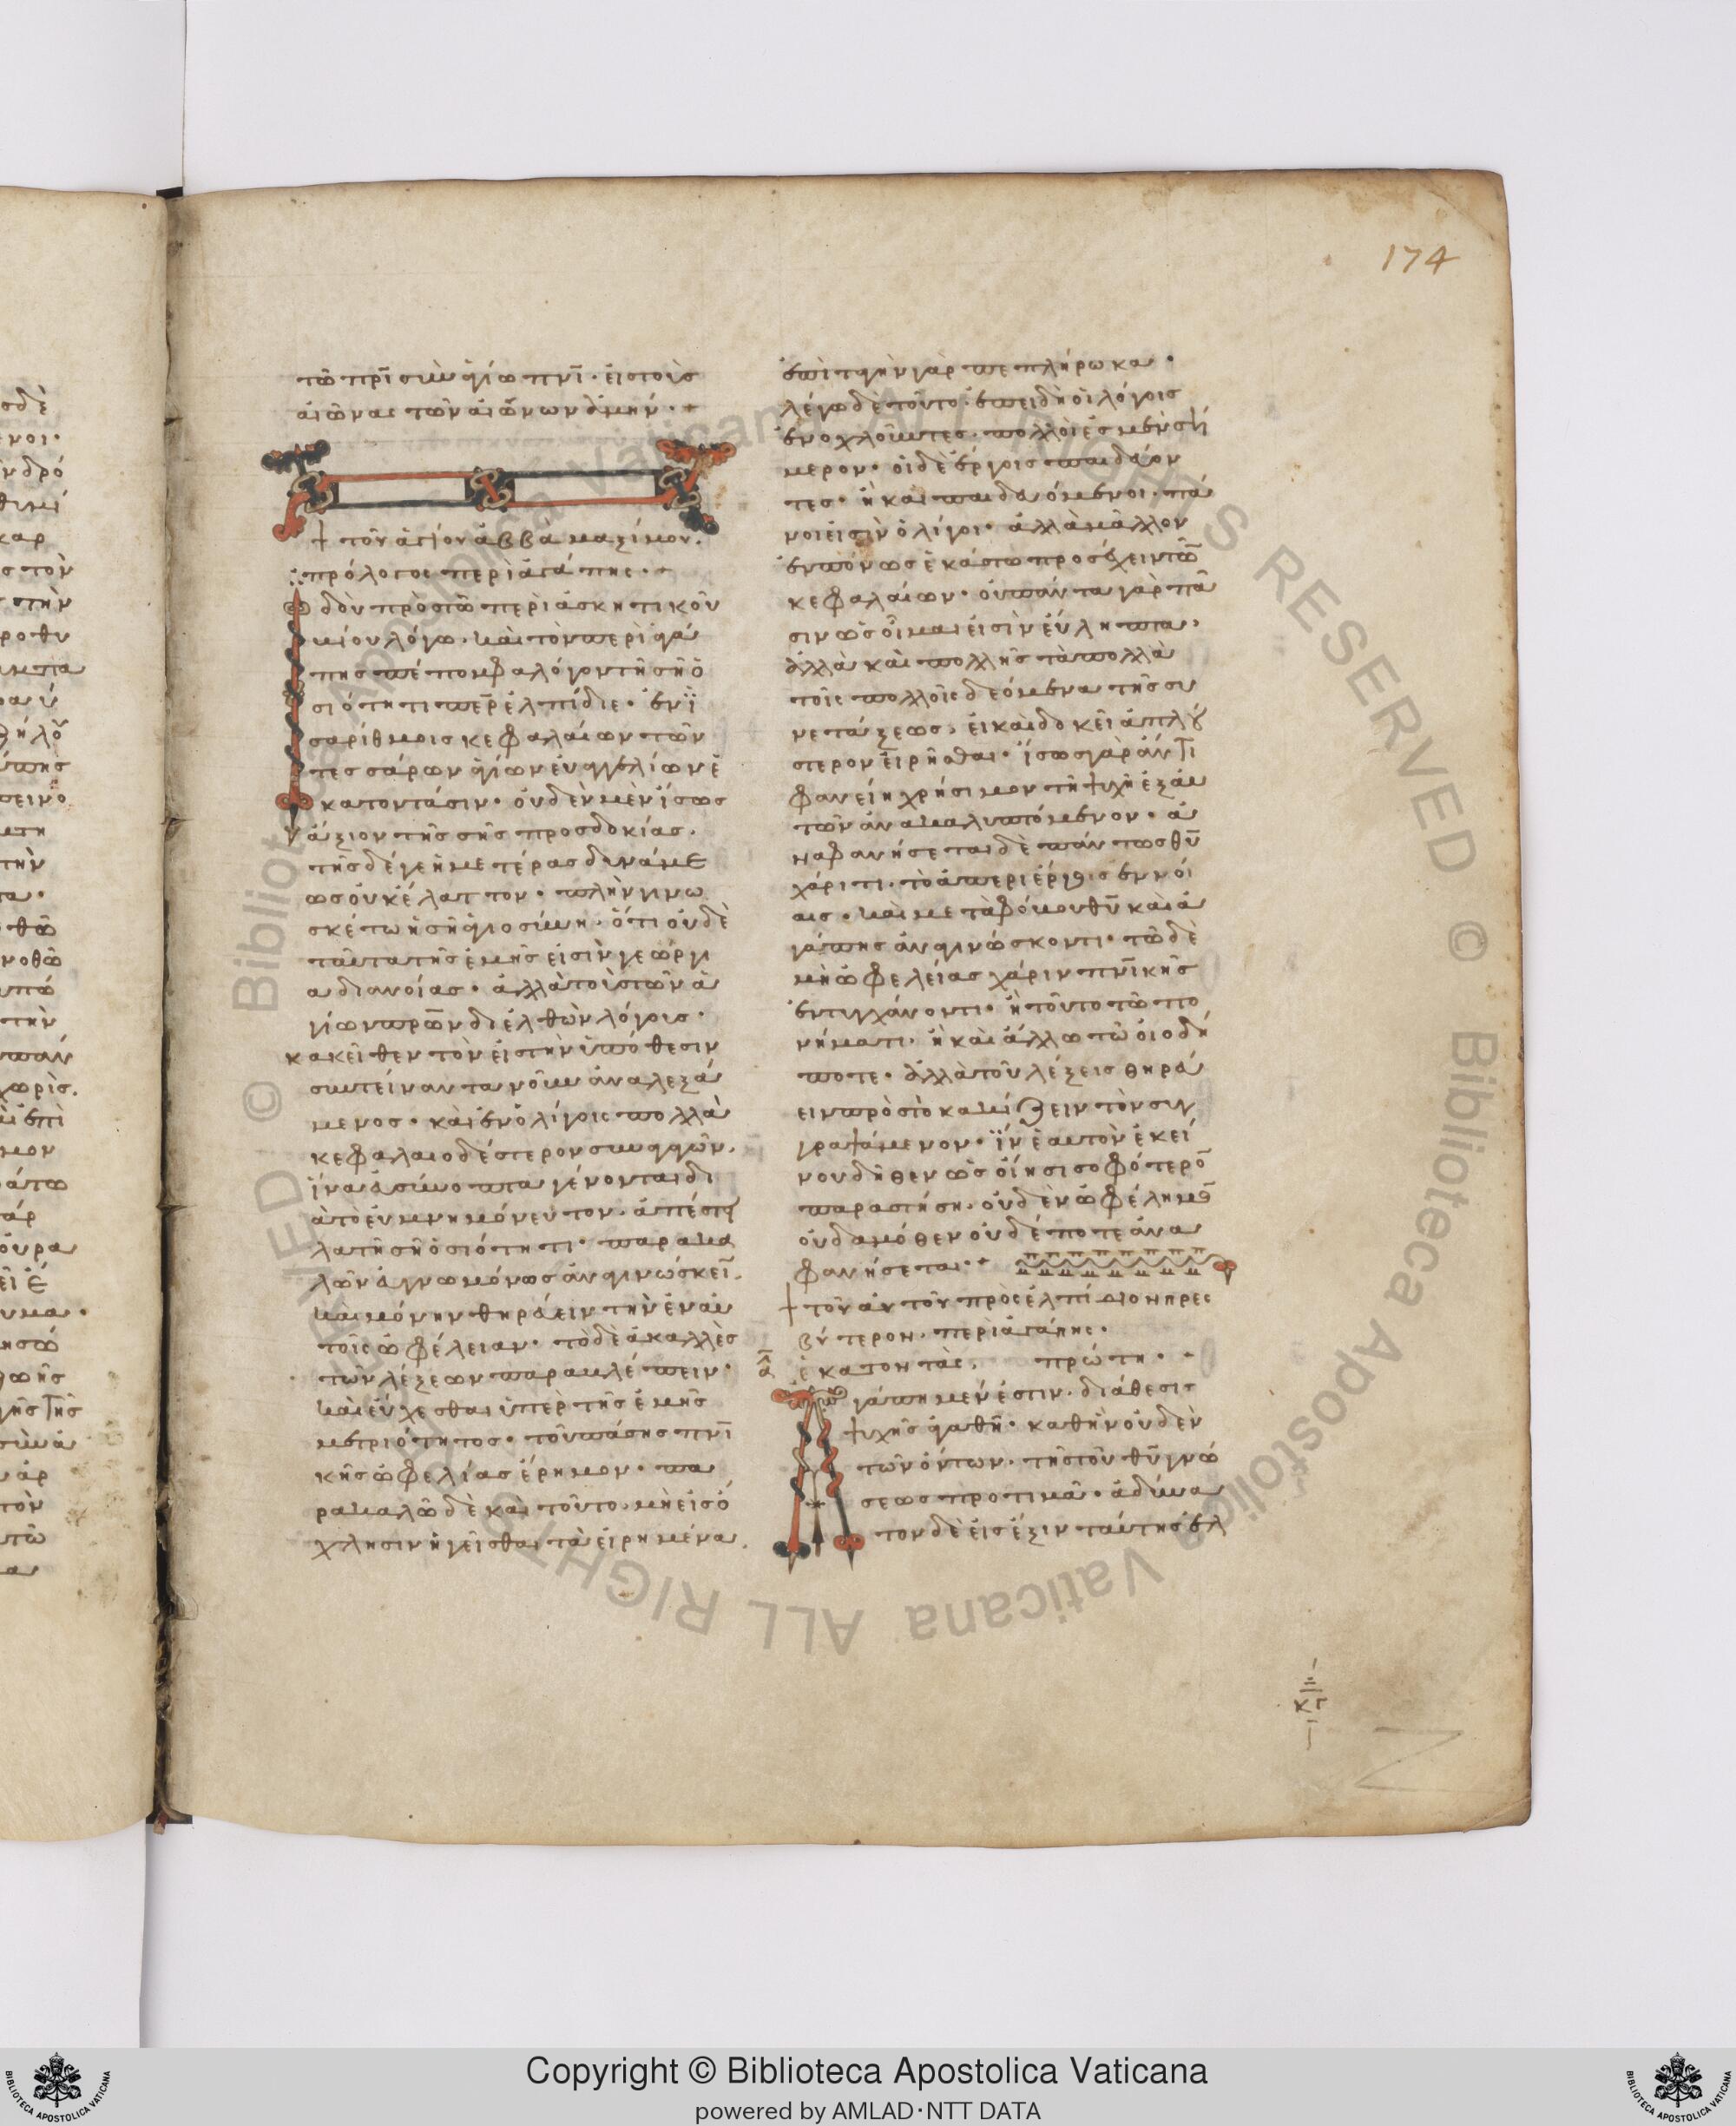 174
τῶ πρι̅ σὺν ἁγίω πνι̅· εἰς τοὺς
αἰῶνας τῶν αἰώνων ἀμήν· +
+ τοῦ ἁγίου ἀββᾶ μαξίμου·
πρόλογος περὶ ἀγάπης· +
ἰδοὺ πρὸς τῶ περὶ ἀσκητικοῦ
βίου λόγω· καὶ τὸν περὶ ἀγά
πης πέπομφα λόγον τῆ σῆ ὁ
σιότητι περ ἐλπίδιε· ἐν ἰ̈
σαρίθμοις κεφαλαίων τῶν
τεσσάρων ἁγίων εὐαγγελίων ἑ
κατοντάσιν· οὐδὲν μὲν ἴσως
ἄξιον τῆς σῆς προσδοκίας·
τῆς δέ γε ἡμετέρας δυνάμε
ως οὐκ ἔλαττον· πλὴν γινω
σκέτω ἡ σὴ ἁγιοσύνη· ὅτι οὐδὲ
ταῦτα τῆς ἐμῆς εἰσὶ γεώργι
α διανοίας· ἀλλὰ τοὺς τῶν ἁ
γίων πρων διελθὼν λόγους·
κακεῖθεν τὸν εἰς τὴν ὑπόθεσιν
συντείναντα νοῦν ἀναλεξά
μενος· καὶ ἐν ὀλίγοις πολλὰ
κεφαλαιοδέστερον συναγαγών·
ἵνα εὐσύνοπτα γένονται δι
ὰ τὸ εὐμνημόνευτον· ἀπέστει
λα τῆ σῆ ὁσιότητι· παρακα
λῶν εὐγνωμόνως ἀναγινώσκει̅·
καὶ μόνην θηρᾴειν τὴν ἐν αὐ
τοῖς ὠφέλειαν· τὸ δὲ ἀκαλλὲς
τῶν λέξεων παραβλέπειν·
καὶ εὔχεσθαι ὑπὲρ τῆς ἐμῆς
μετριότητος· τοῦ πάσης πνι̅
κῆς ὠφελίας ἐρήμου· πα
ρακαλῶ δὲ καὶ τοῦτο· μὴ εἰς ὄ
χλησιν ἡγεῖσθαι τὰ εἰρημένα·
ἐπιταγὴν γὰρ πεπλήρωκα·
λέγω δὲ τοῦτο· ἐπειδὴ οἱ λόγοις
ἐνοχλοῦντες· πολλοὶ ἐσμὲν σή
μερον· οἱ δὲ ἔργοις παιδεύον
τες· ἢ καὶ παιδευόμενοι· πά
νυ εἰσὶν ὀλίγοι· ἀλλὰ μᾶλλον
ἐμπόνως ἑκάστω προσέχειν τῶ̅
κεφαλαίων· οὐ πάντα γὰρ πᾶ
σιν ὡς οἶμαι εἰσὶν εὔληπτα·
ἀλλὰ καὶ πολλῆς τὰ πολλὰ
τοῖς πολλοῖς δεόμενα τῆς συ
νετάξεως· εἰ καὶ δοκεῖ ἁπλού
στερον εἰρῆσθαι· ἴσως γὰρ ἄν τι
φανείη χρήσιμον τῆ ψυχῆ ἐξ αὐ
τῶν ἀνακαλυπτόμενον· ἀ
ναφανήσεται δὲ πάντως θυ̅
χάριτι· τὸ ἀπεριέργοις ἐννοί
αις· καὶ μετὰ φόβου θυ̅ καὶ ἀ
γάπης ἀναγινώσκοντι· τῶ δὲ
μὴ ὠφελείας χάριν πνι̅κῆς
ἐντυγχάνοντι· ἢ τοῦτο τῶ πο
νήματι· ἢ καὶ ἄλλω τῶ οἱοδή
ποτε· ἀλλὰ τοῦ λέξεις θηρᾴ
ειν πρὸς τὸ κακίζειν τὸν συγ
γραψάμενον· ἵν' ἑαυτὸν ἐκεί
νου δῆθεν ὡς οἴησι σοφότερο̅
παραστήση· οὐδὲν ὠφέλημο̅
οὐδαμόθεν οὐδέποτε ἀνα
φανήσεται· +
+ τοῦ αὐτοῦ πρὸς ἐλπίδιον πρες
βύτερον· περὶ ἀγάπης·
α̅ ἑκατοντὰς· πρώτη· +
Ἀγάπη μέν ἐστιν· διάθεσις
ψυχῆς ἀγαθῆ· καθ' ἣν οὐδὲν
τῶν ὄντων· τῆς τοῦ θυ̅ γνώ
σεως προτιμᾶ· ἀδύνα
τον δὲ εἰς ἕξιν ταύτης ἐλ
κγ
Copyright © Biblioteca Apostolica Vaticana
powered by AMLAD·NTT DATA